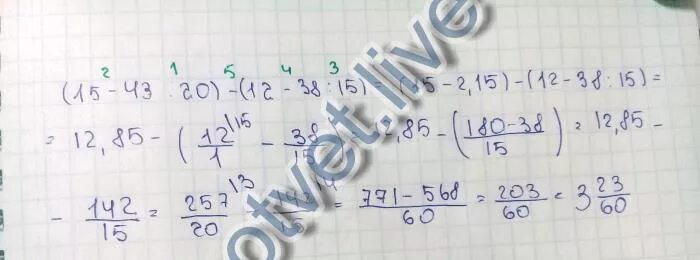 2 1 5 4 3
(15 - 43 : 20) - (12 - 38 : 15) (15 - 2,15) - (12 - 38 : 15) =
= 12,85 - (12/1 |15 - 38/15) 2,85 - (180 - 38/15) = 12,85 -
- 142/15 = 257/20 |3 142/15 |4 = 771 - 568/60 = 203/60 = 3 23/60
otvet.live